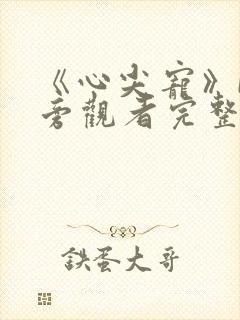 《心尖寵》
旁觀者完整
鉄蛋大哥